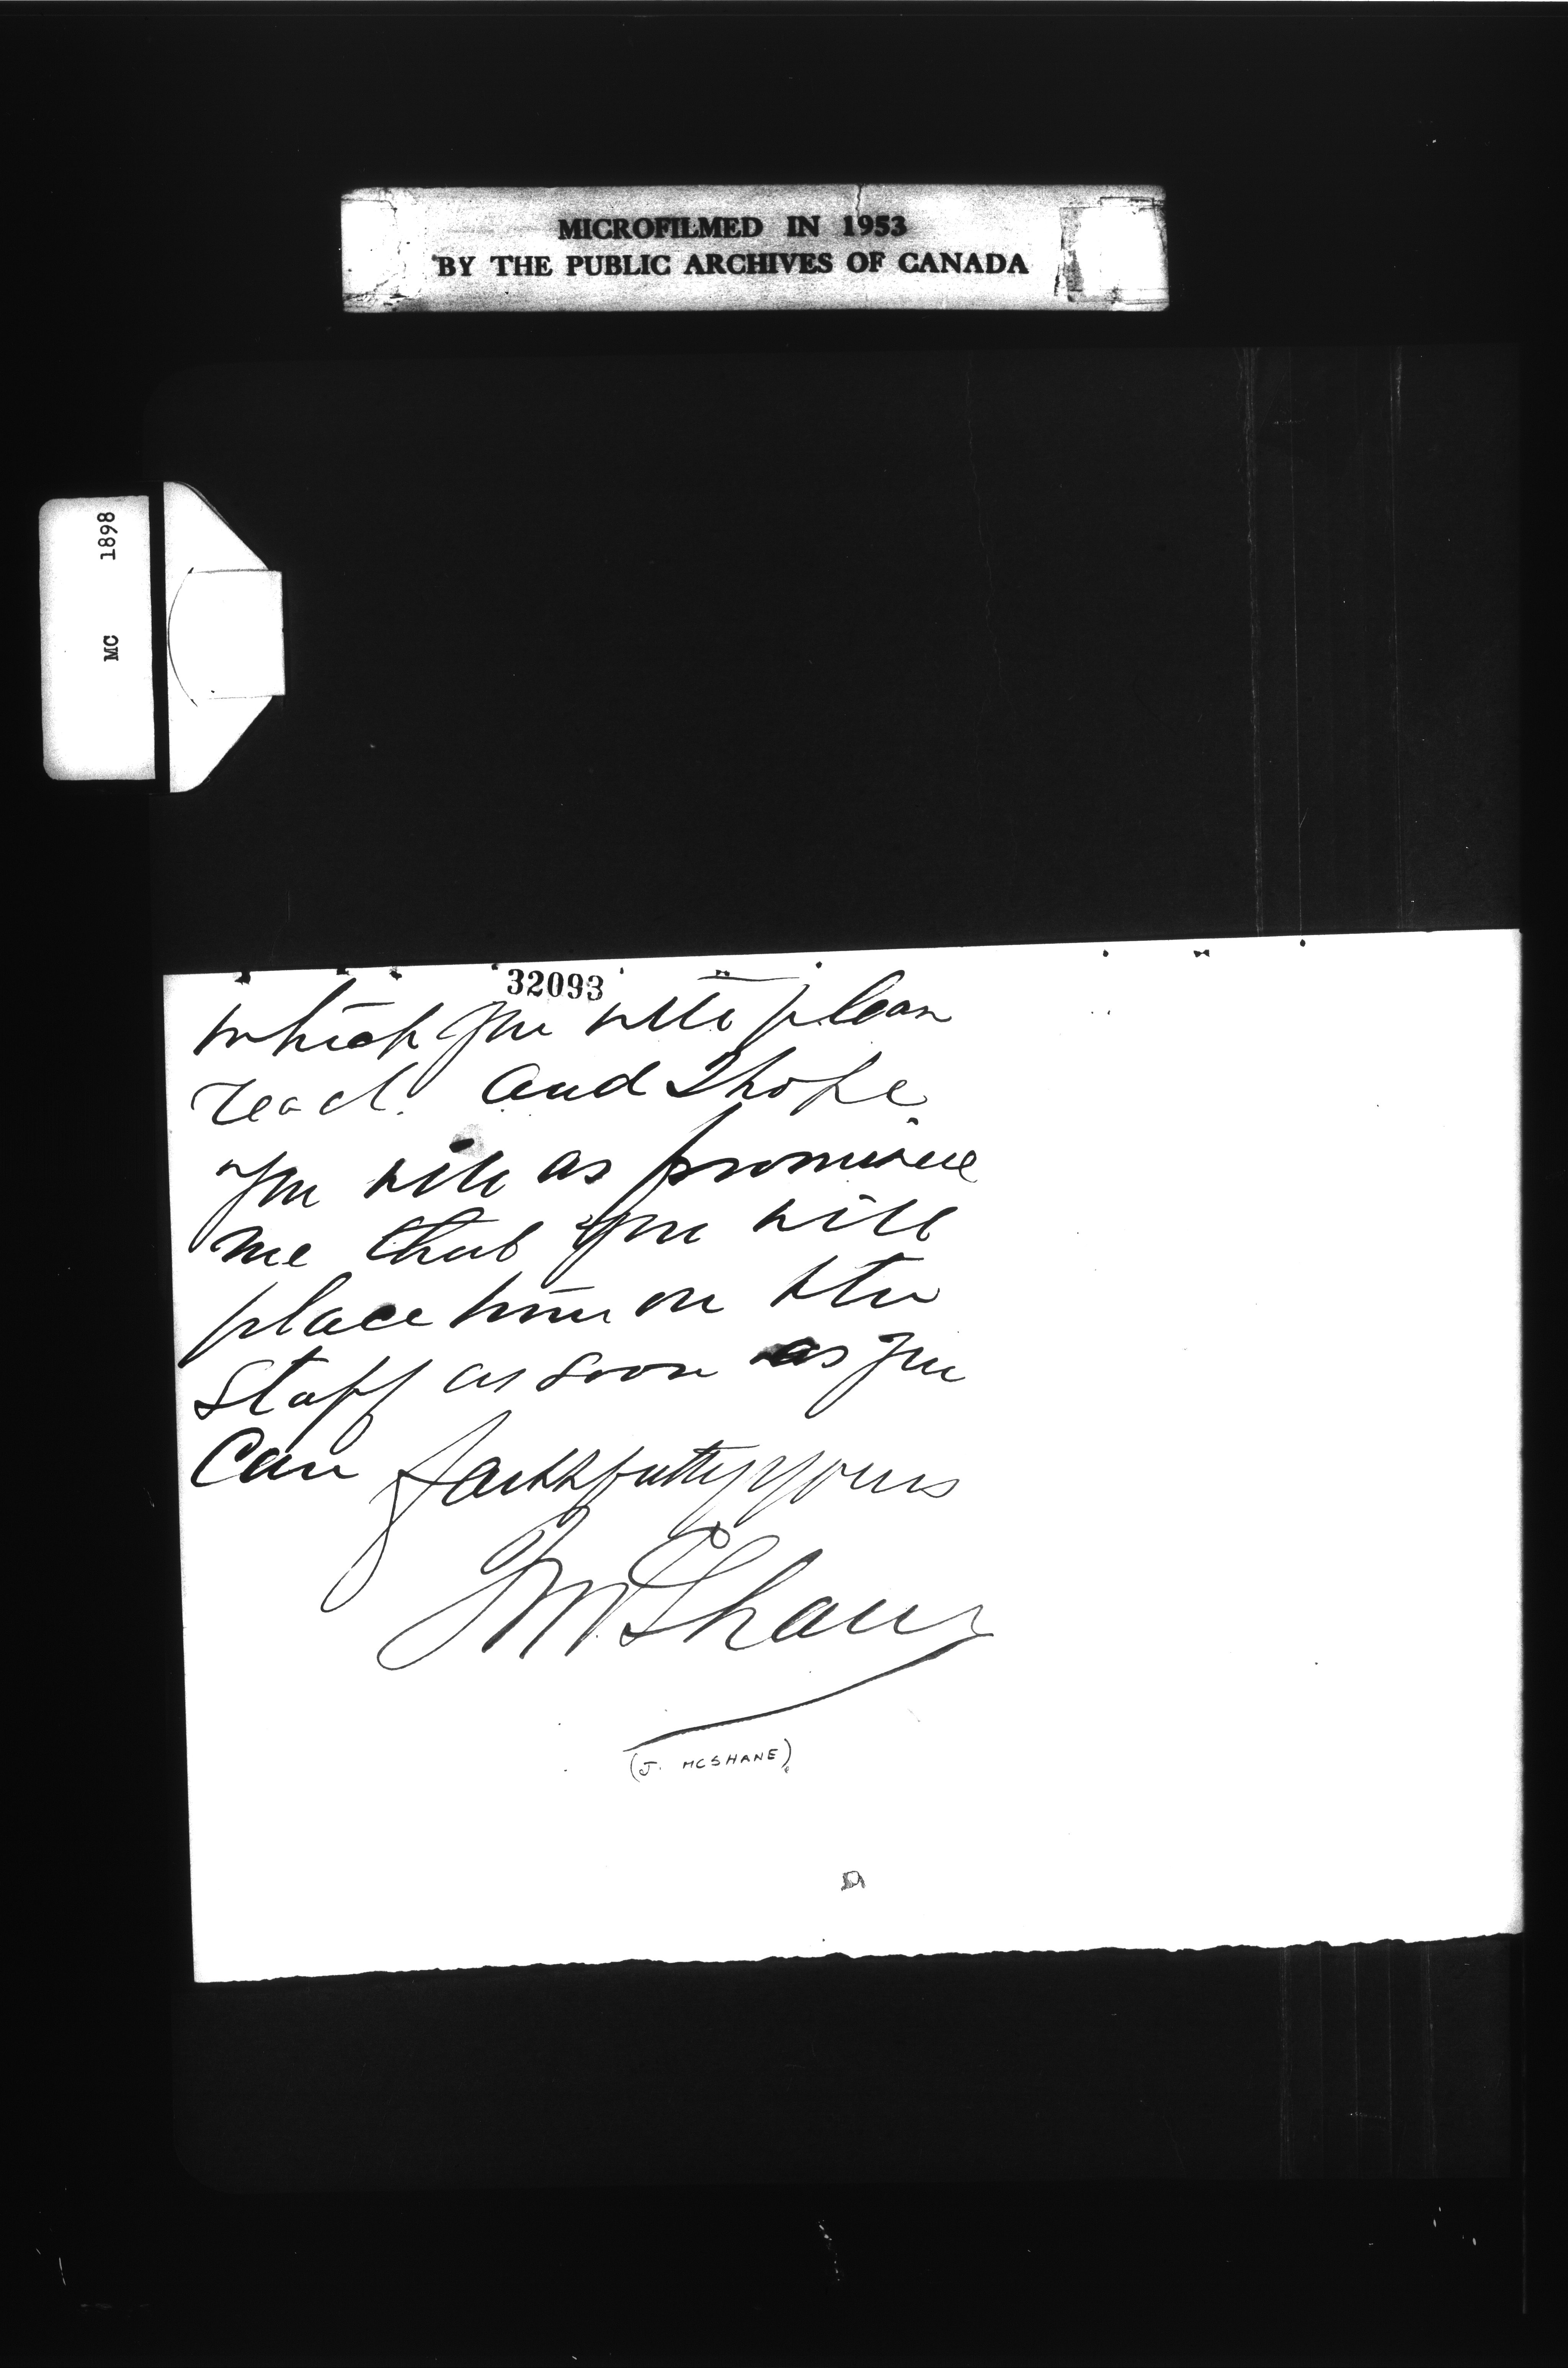 MICROFILMED IN 1953
BY THE PUBLIC ARCHIVES OF CANADA
MC 1898
32093
which you will please
read. and I hope
you will as promised
me that you will
place him on the
staff as soon as you
Can faithfully yours
J McShane
(J. MCSHANE)